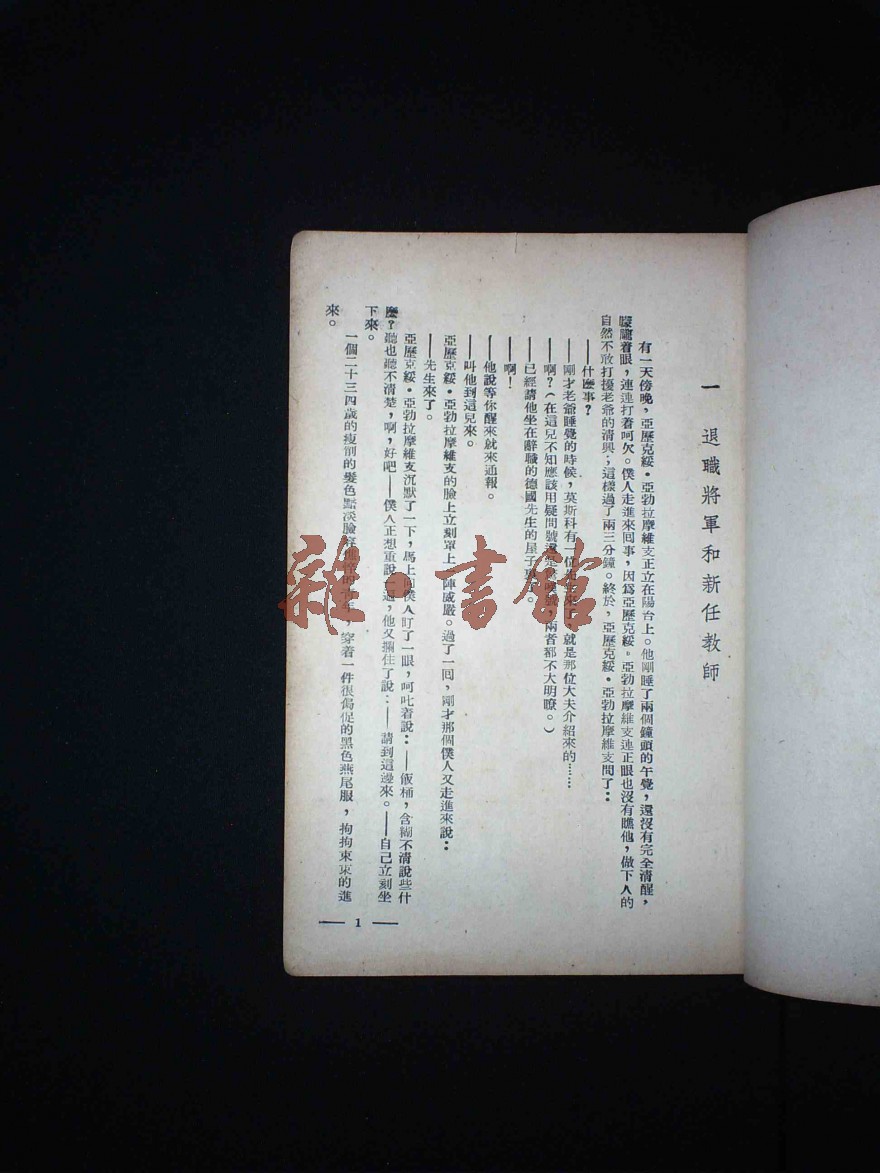 一 退職將軍和新任教師
有一天傍晚，亞歷克綏·亞勃拉摩維支正立在陽台上。他剛睡了兩個鐘頭的午覺，還沒有完全清醒，
矇矓着眼，連連打着呵欠。僕人走進來回事，因爲亞歷克綏。亞勃拉摩維支連正眼也沒有瞧他，做下人的
自然不敢打擾老爺的清興；這樣過了兩三分鐘。終於，亞歷克綏·亞勃拉摩維支問了：
——什麽事？
——剛才老爺睡覺的時候，莫斯科有一位先生來了，就是那位大夫介紹來的……
——啊？（在這兒不知應該用疑問號還是，兩者都不大明瞭。）
——已經請他坐在辭職的德國先生的屋子。
——啊！
——他說等你醒來就來通報。
——叫他到這兒來。
亞歷克綏·亞勃拉摩維支的臉上立刻罩上一陣威嚴。過了一囘，剛才那個僕人又走進來說：
——先生來了。
亞歷克綏·亞勃拉摩維支沉默了一下，馬上向僕人盯了一眼，呵叱着說：——飯桶，含糊不清說些什
麽？聽也聽不清楚，啊，好吧——僕人正想重說一遍，他又攔住了說：——請到這邊來。——自己立刻坐
下來。
一個二十三四歲的瘦削的髮色黯淡臉容的青年，穿着一件很侷促的黑色燕尾服，拘拘束束的進
來。
— 1 —
雜·書館